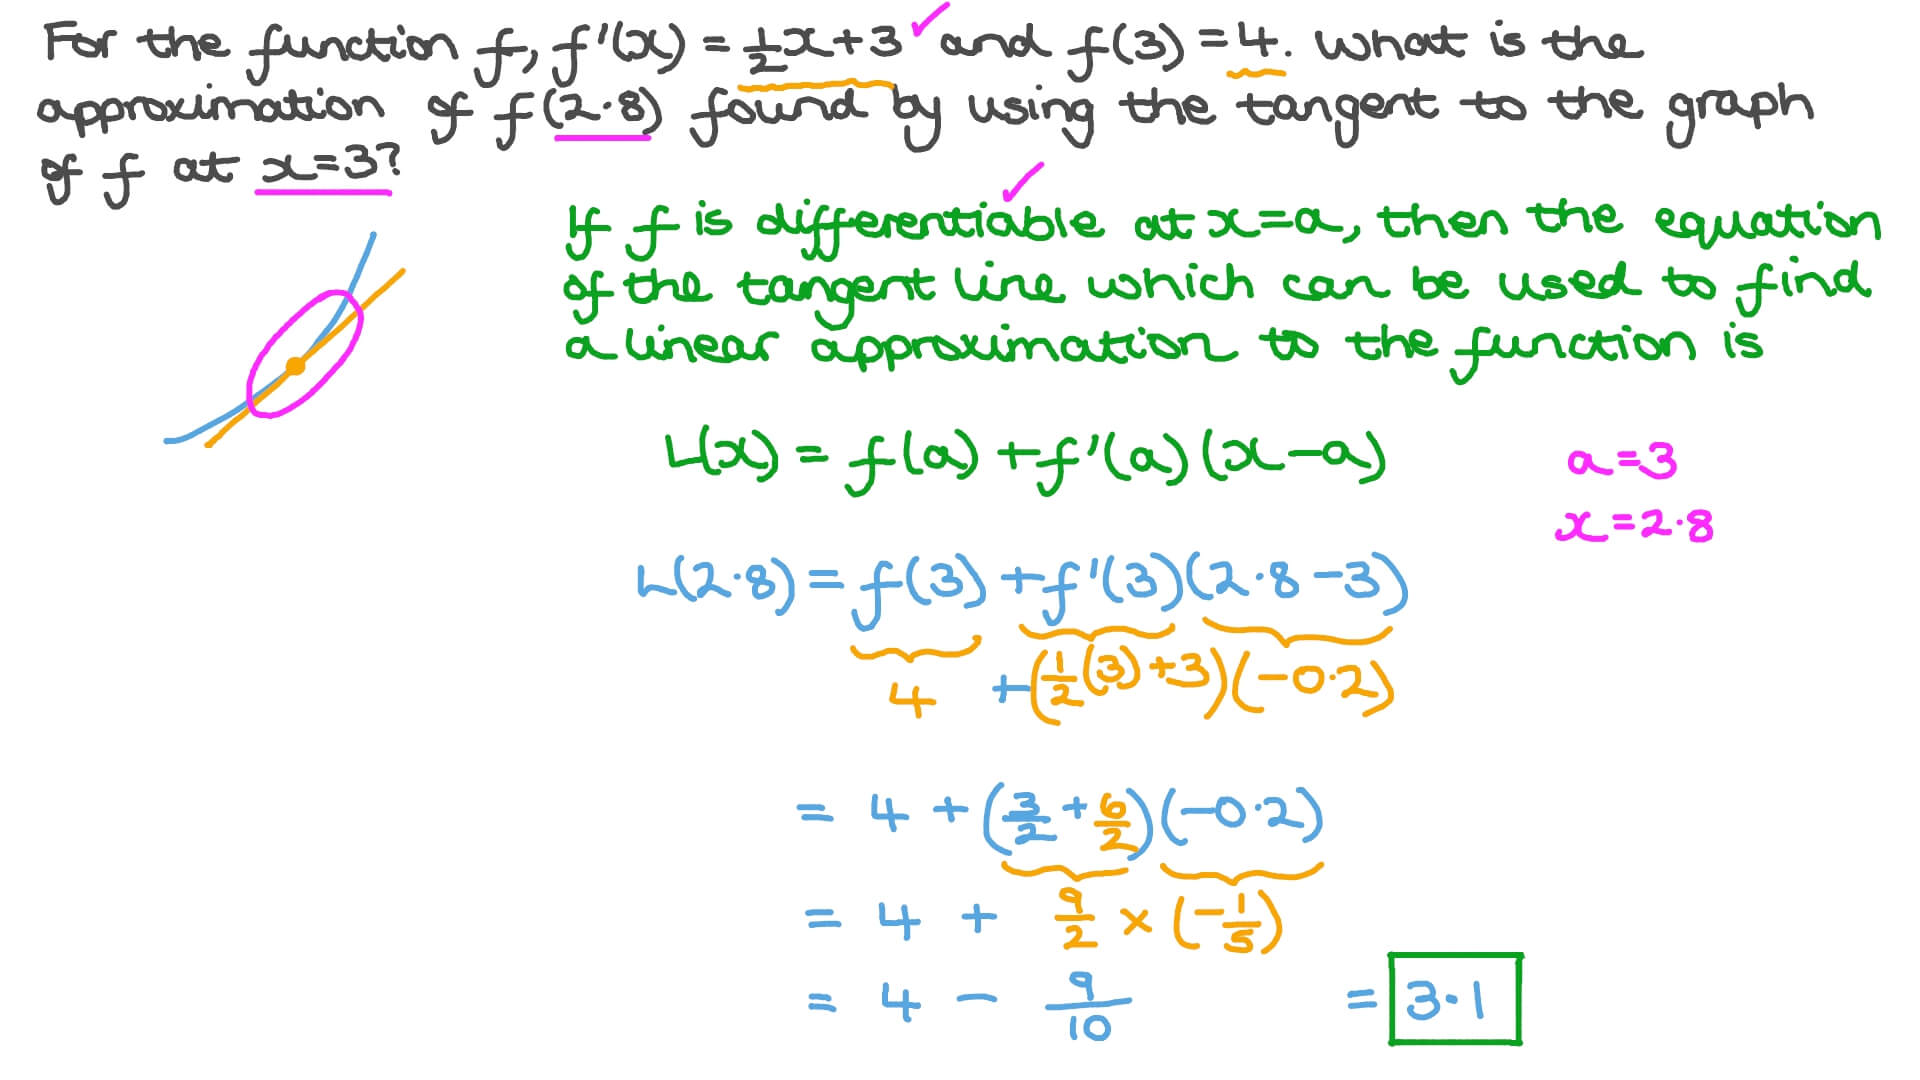 For the function f, f'(x) = 1/2 x + 3 ✓ and f(3) = 4. What is the
approximation of f(2·8) found by using the tangent to the graph
of f at x=3?
✓
If f is differentiable at x=a, then the equation
of the tangent line which can be used to find
a linear approximation to the function is
L(x) = f(a) + f'(a)(x-a)
a=3
x=2·8
L(2·8) = f(3) + f'(3)(2·8-3)
4 + (1/2(3)+3)(-0·2)
= 4 + (3/2 + 6/2)(-0·2)
= 4 + 9/2 × (-1/5)
= 4 - 9/10 = 3·1